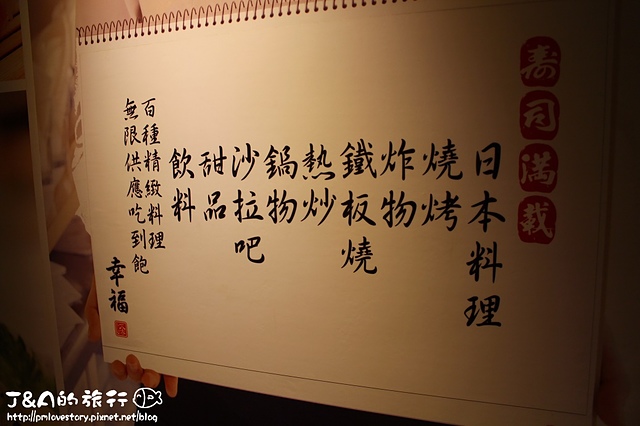 壽司滿載
日本料理
燒烤
炸物
鐵板燒
熱炒
鍋物
沙拉吧
甜品
飲料
百種精緻料理
無限供應吃到飽
幸福
J&A的旅行
http://pmlovestory.pixnet.net/blog